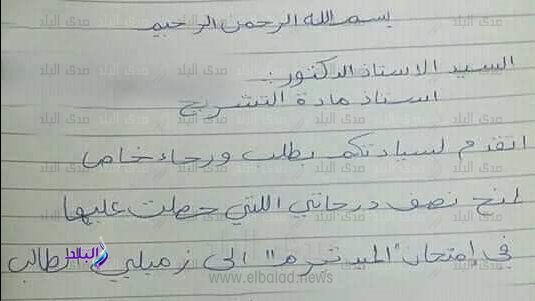 بسم الله الرحمن الرحيم
السيد الاستاذ الدكتور :
استاذ مادة التشريح
اتقدم لسيادتكم بطلب ورجاء خاص
لمنح نصف درجاتي اللتي حصلت عليها
في إمتحان "الميد تيرم" الى زميلي الطالب
صدى البلد
www.elbalad.news